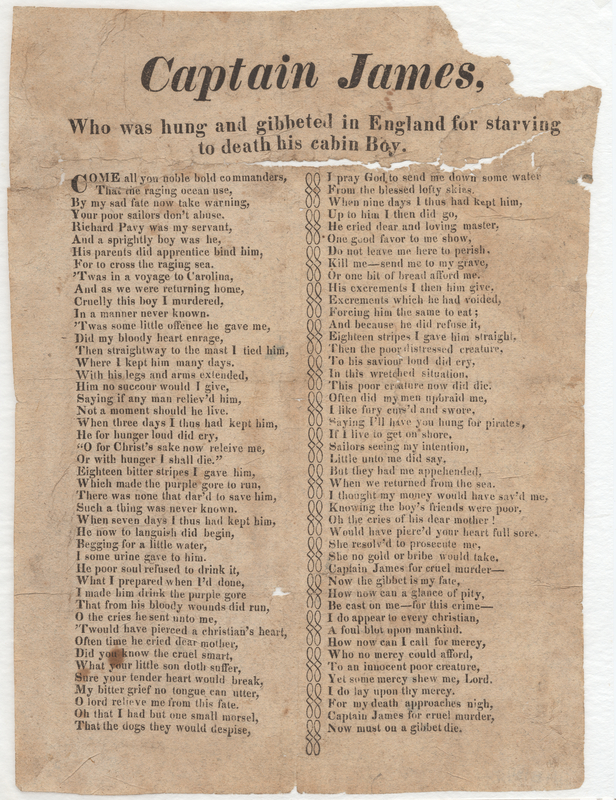 Captain James,
Who was hung and gibbeted in England for starving
to death his cabin Boy.
COME all you noble bold commanders,
That the raging ocean use,
By my sad fate now take warning,
Your poor sailors don't abuse.
Richard Pavy was my servant,
And a sprightly boy was he,
His parents did apprentice bind him,
For to cross the raging sea.
'Twas in a voyage to Carolina,
And as we were returning home,
Cruelly this boy I murdered,
In a manner never known.
'Twas some little offence he gave me,
Did my bloody heart enrage,
Then straightway to the mast I tied him,
Where I kept him many days.
With his legs and arms extended,
Him no succour would I give,
Saying if any man reliev'd him,
Not a moment should he live.
When three days I thus had kept him,
He for hunger loud did cry,
"O for Christ's sake now releive me,
Or with hunger I shall die."
Eighteen bitter stripes I gave him,
Which made the purple gore to run,
There was none that dar'd to save him,
Such a thing was never known.
When seven days I thus had kept him,
He now to languish did begin,
Begging for a little water,
I some urine gave to him.
He poor soul refused to drink it,
What I prepared when I'd done,
I made him drink the purple gore
That from his bloody wounds did run,
O the cries he sent unto me,
'Twould have pierced a christian's heart,
Often time he cried dear mother,
Did you know the cruel smart,
What your little son doth suffer,
Sure your tender heart would break,
My bitter grief no tongue can utter,
O lord relieve me from this fate.
Oh that I had but one small morsel,
That the dogs they would despise,
I pray God to send me down some water
From the blessed lofty skies.
When nine days I thus had kept him,
Up to him I then did go,
He cried dear and loving master,
One good favor to me show,
Do not leave me here to perish.
Kill me—send me to my grave,
Or one bit of bread afford me.
His excrements I then him give,
Excrements which he had voided,
Forcing him the same to eat;
And because he did refuse it,
Eighteen stripes I gave him straight,
Then the poor distressed creature,
To his saviour loud did cry,
In this wretched situation,
This poor creature now did die.
Often did my men upbraid me,
I like fury curs'd and swore,
Saying I'll have you hung for pirates,
If I live to get on shore,
Sailors seeing my intention,
Little unto me did say.
But they had me appehended,
When we returned from the sea.
I thought my money would have sav'd me,
Knowing the boy's friends were poor,
Oh the cries of his dear mother!
Would have pierc'd your heart full sore.
She resolv'd to prosecute me,
She no gold or bribe would take.
Captain James for cruel murder—
Now the gibbet is my fate,
How now can a glance of pity,
Be cast on me—for this crime—
I do appear to every christian,
A foul blot upon mankind.
How now can I call for mercy,
Who no mercy could afford,
To an innocent poor creature,
Yet some mercy shew me, Lord.
I do lay upon thy mercy.
For my death approaches nigh,
Captain James for cruel murder,
Now must on a gibbet die.